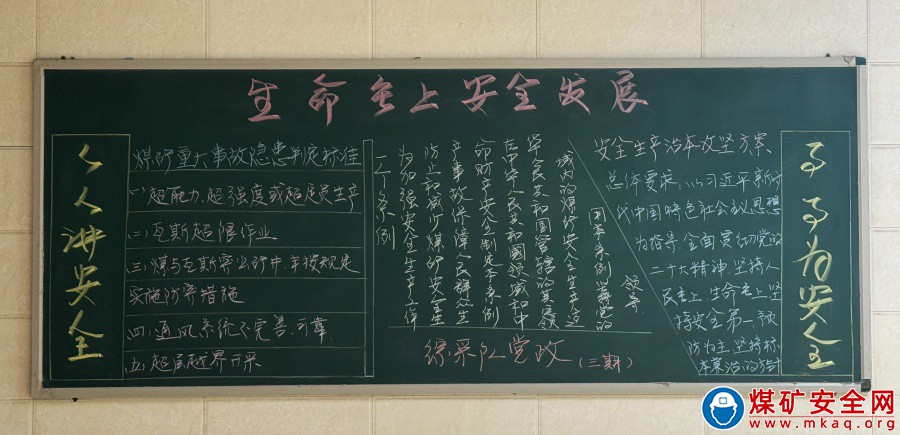 生命至上安全发展
人人讲安全
煤矿重大事故隐患判定标准
(一)超能力、超强度或超定员生产
(二)瓦斯超限作业
(三)煤与瓦斯突出矿井,未按规定
实施防突措施
(四)通风系统不完善、可靠
(五)超层越界开采
(一)条例
为加强安全生产工作
防止和减少煤矿安全生
产事故保障人民群众生
命财产安全制定本条例
在中华人民共和国领域和中
华人民共和国管辖的其他
域内的煤矿安全生产适
用本条例
领导
综采队党政
(三期)
安全生产治本攻坚方案
总体要求:以习近平新时
代中国特色社会主义思想
为指导,全面贯彻党的
二十大精神,坚持人
民至上,生命至上,坚
持安全第一,预
防为主,坚持标
本兼治的方针
事事为安全
煤矿安全网
www.mkaq.org